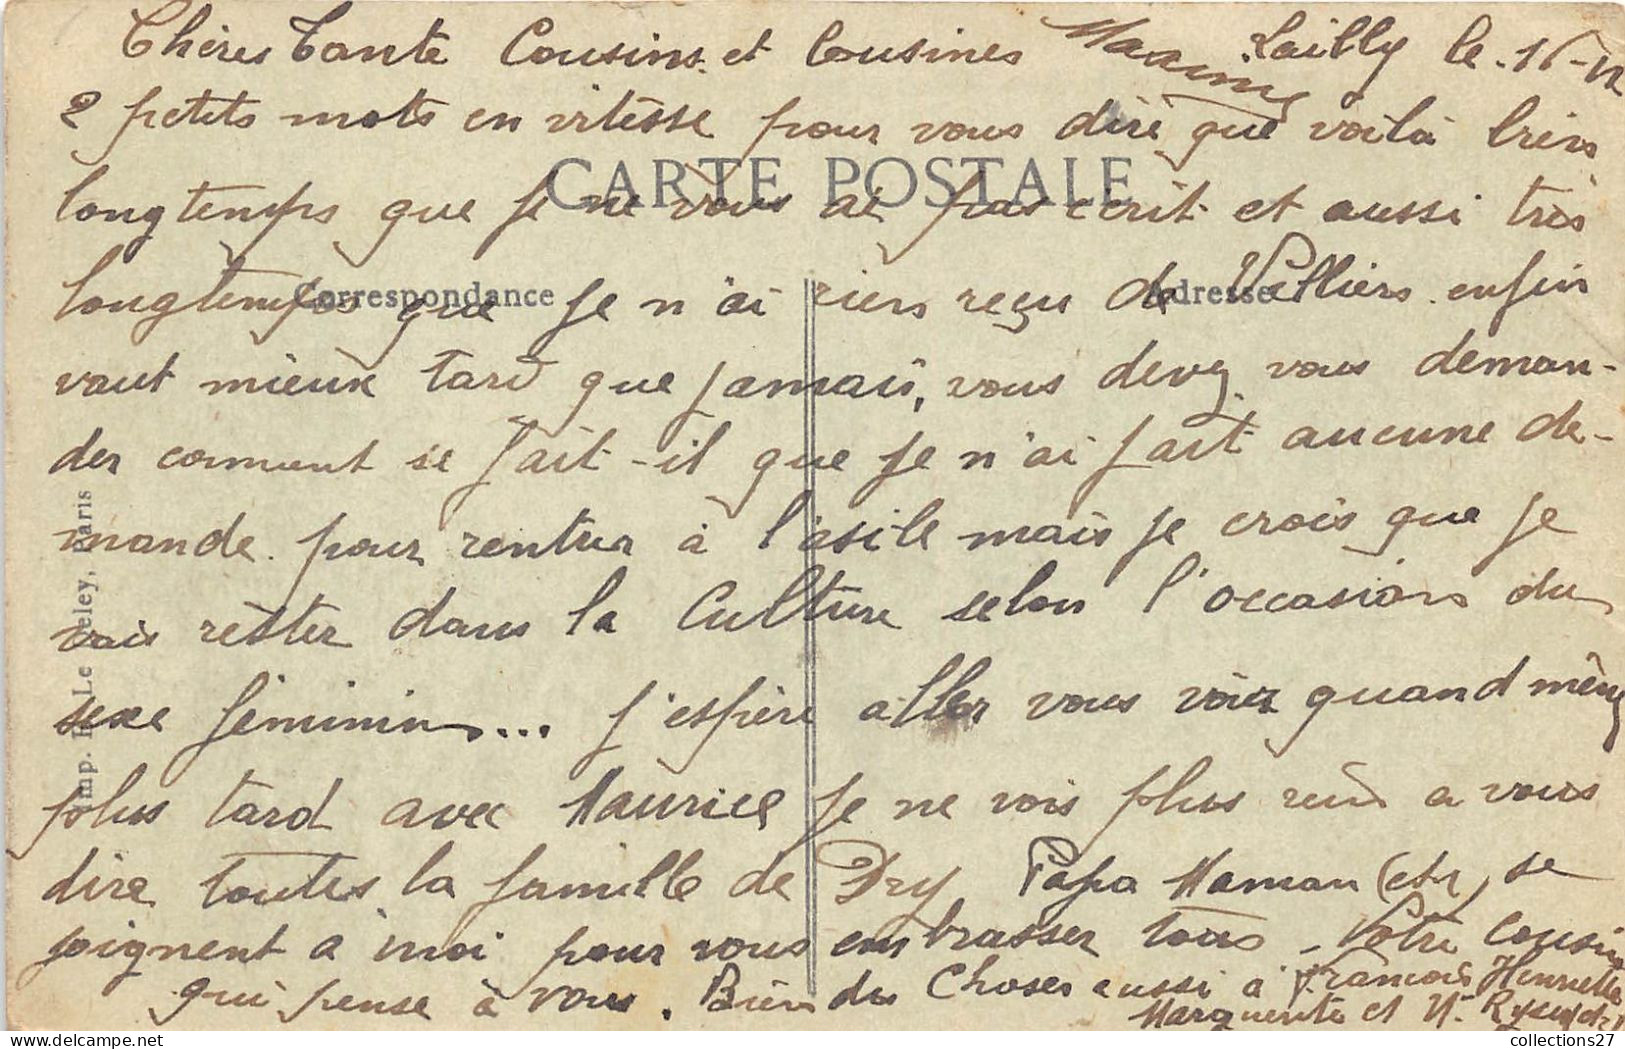 Chères Tante Cousins et Cousines Lailly le 16-12
Maxime
2 petits mots en vitesse pour vous dire que voilà très
CARTE POSTALE
longtemps que je ne vous ai pas écrit et aussi très
Correspondance Adresse
longtemps que je n'ai rien reçu de Villiers enfin
vaut mieux tard que jamais, vous devez vous deman-
der comment se fait-il que je n'ai fait aucune de-
mande pour rentrer à l'asile mais je crois que je
vais rester dans la Culture selon l'occasion du
sexe féminin... j'espère aller vous voir quand même
plus tard avec Maurice je ne vois plus rien a vous
dire toutes la famille de Dry Papa Maman (etc) se
joignent à moi pour vous embrasser tous - Votre Cousin
qui pense à vous. Bien des Choses aussi à François Henriette
Marguerite et
Imp. Le Deley, Paris
collections27